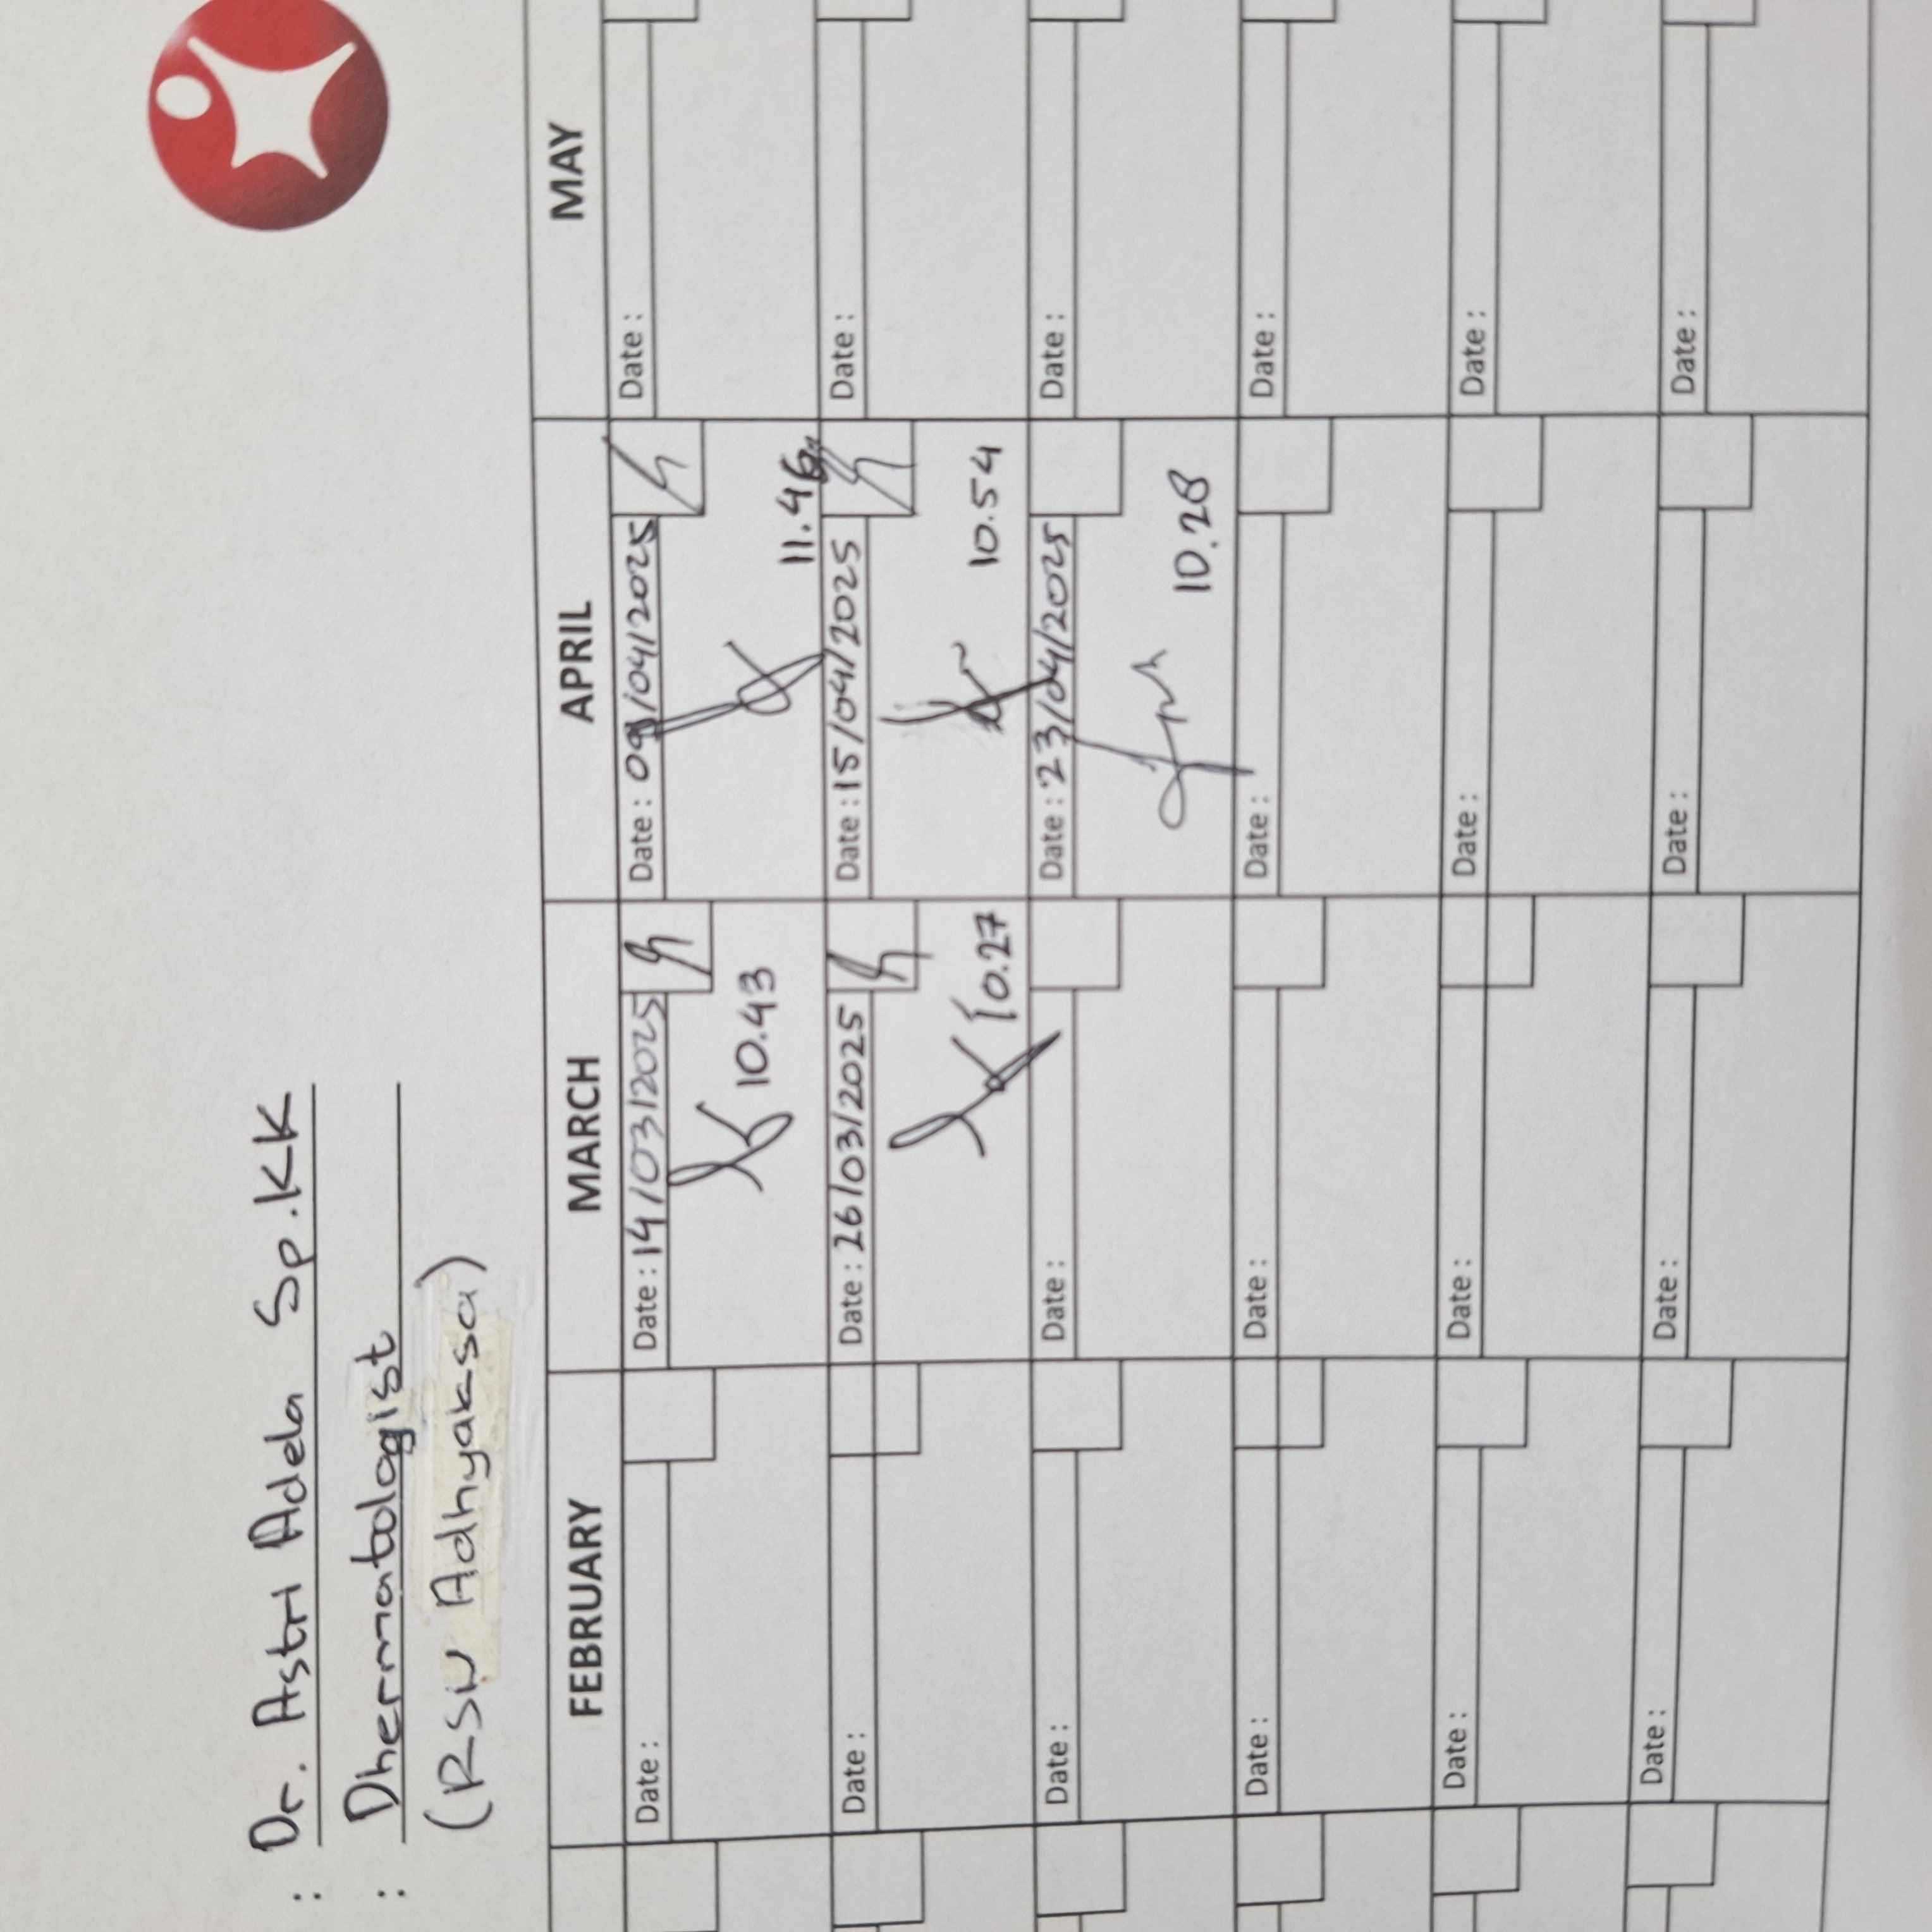 : Dr. Astri Adela Sp.KK
: Dhermatologist
(RSU Adhyaksa)
FEBRUARY MARCH APRIL MAY
Date : Date : 14/03/2025 Date : 09/04/2025 Date :
10.43 11.46
Date : Date : 26/03/2025 Date : 15/04/2025 Date :
10.27 10.54
Date : Date : Date : 23/04/2025 Date :
10.28
Date : Date : Date : Date :
Date : Date : Date : Date :
Date : Date : Date : Date :